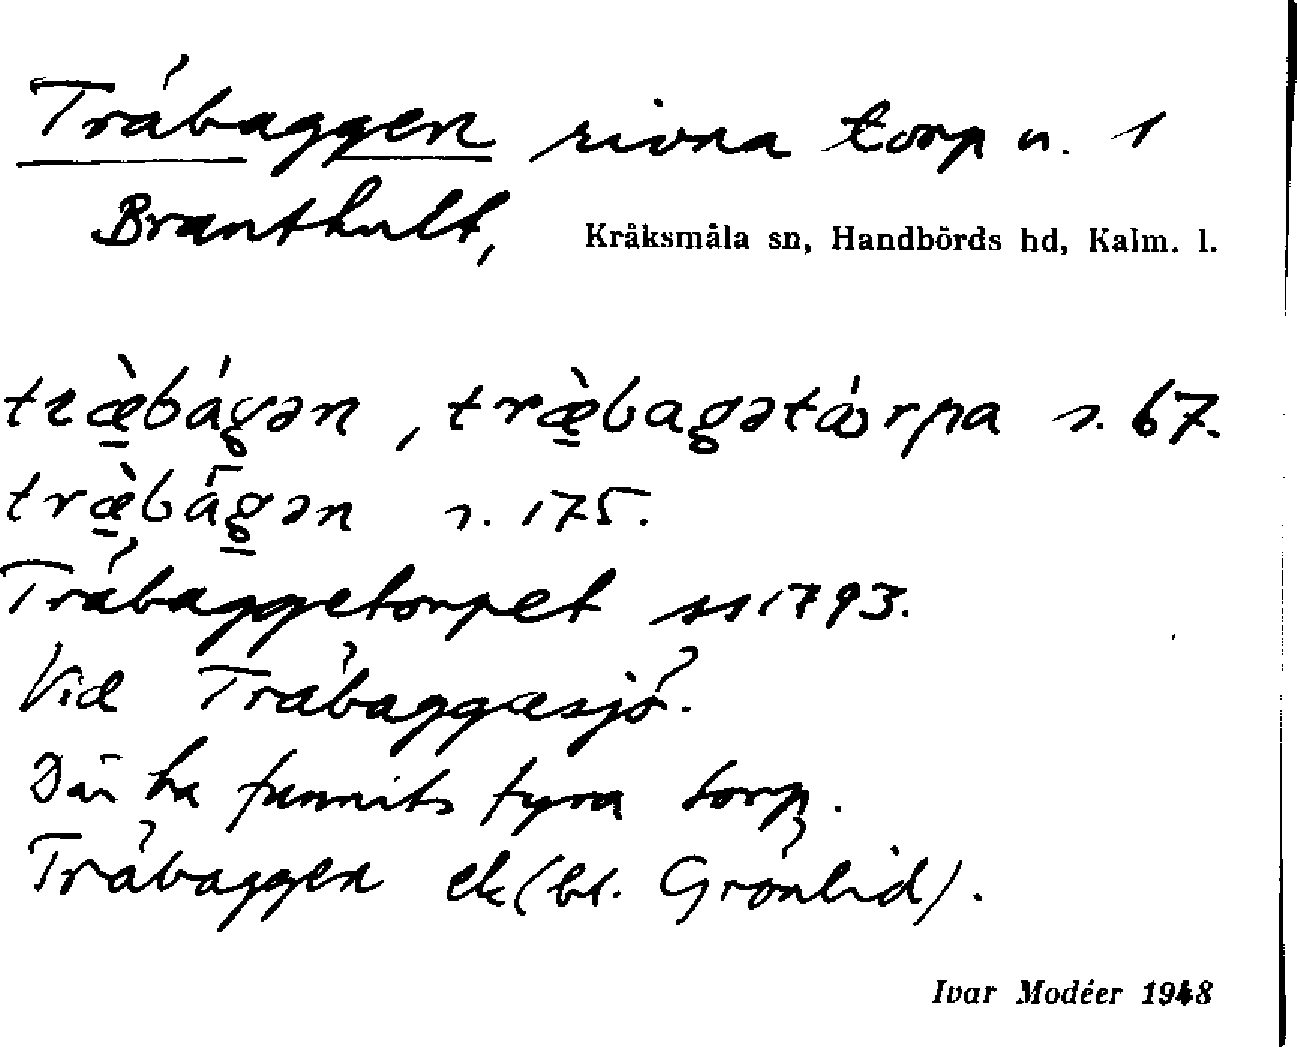 Träbaggen rivna torp u. 1
Branthult, Kråksmåla sn, Handbörds hd, Kalm. l.
træ̀bágən, træ̀bagətɷ́rpa s. 67.
træ̀bāgən s. 175.
Träbaggetorpet ss 1793.
Vid Träbaggasjö.
Där ha funnits fyra torp.
Träbaggen ek (bl. Grönlid).
Ivar Modéer 1948